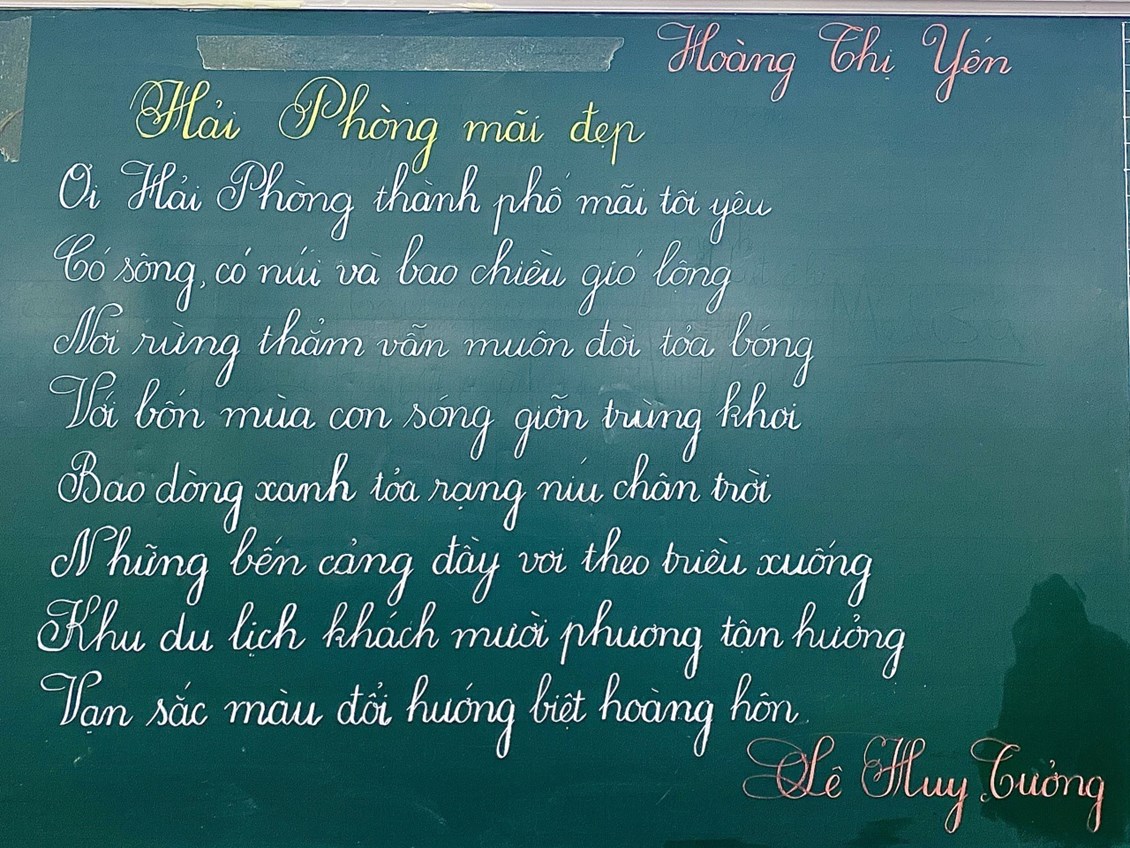 Hoàng Thị Yến
Hải Phòng mãi đẹp
Ơi Hải Phòng thành phố mãi tôi yêu
Có sông, có núi và bao chiều gió lộng
Nơi rừng thẳm vẫn muôn đời tỏa bóng
Với bốn mùa con sóng giỡn trùng khơi
Bao dòng xanh tỏa rạng níu chân trời
Những bến cảng đầy vơi theo triều xuống
Khu du lịch khách mười phương tận hưởng
Vạn sắc màu đổi hướng biệt hoàng hôn.
Lê Huy Tưởng